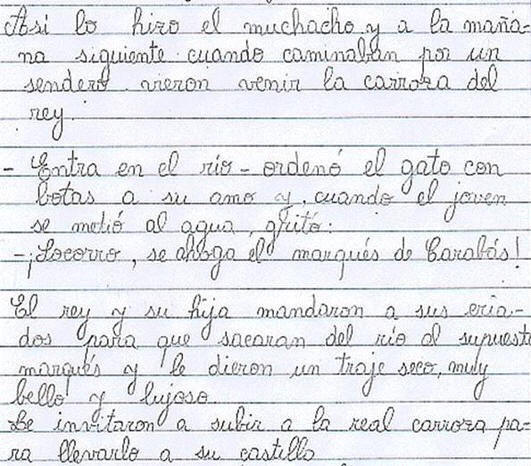 Así lo hizo el muchacho y a la maña-
na siguiente cuando caminaban por un
sendero vieron venir la carroza del
rey.
- Entra en el río - ordenó el gato con
botas a su amo y, cuando el joven
se metió al agua, gritó:
- ¡Socorro, se ahoga el marqués de Carabás!
El rey y su hija mandaron a sus cria-
dos para que sacaran del río al supuesto
marqués y le dieron un traje seco, muy
bello y lujoso.
Le invitaron a subir a la real carroza pa-
ra llevarlo a su castillo